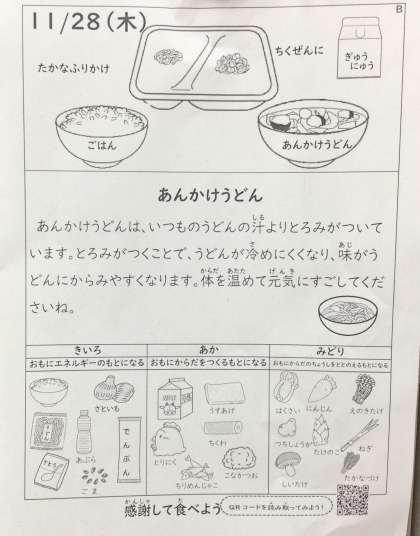 B
11/28(木)
たかなふりかけ
ちくぜんに
ぎゅう
にゅう
ごはん
あんかけうどん
あんかけうどん
あんかけうどんは、いつものうどんの汁よりとろみがついて
います。とろみがつくことで、うどんが冷めにくくなり、味がう
どんにからみやすくなります。体を温めて元気にすごしてくだ
さいね。
きいろ
おもにエネルギーのもとになる
さといも
あぶら
でんぷん
ごま
あか
おもにからだをつくるもとになる
うすあげ
ちくわ
とりにく
こなかつお
ちりめんじゃこ
みどり
おもにからだのちょうしをととのえるもとになる
はくさい
にんじん
えのきたけ
つちしょうが
たけのこ
ねぎ
しいたけ
たかなづけ
感謝して食べよう
QRコードを読み取ってみよう!